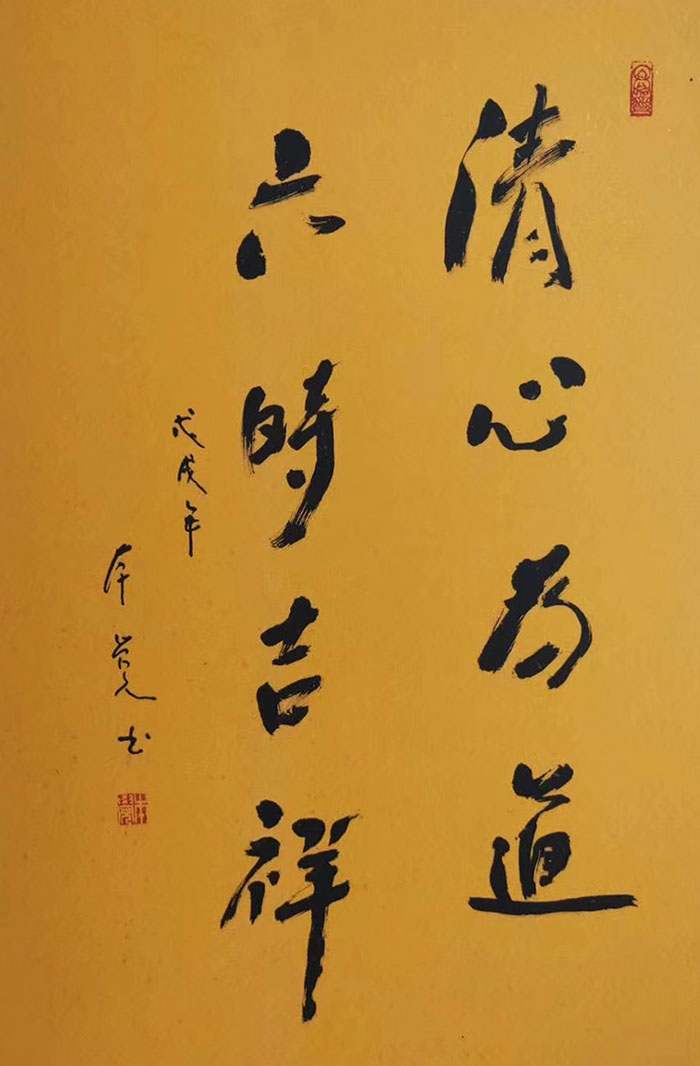 清心為道
六時吉祥
戊戌年
本覺书